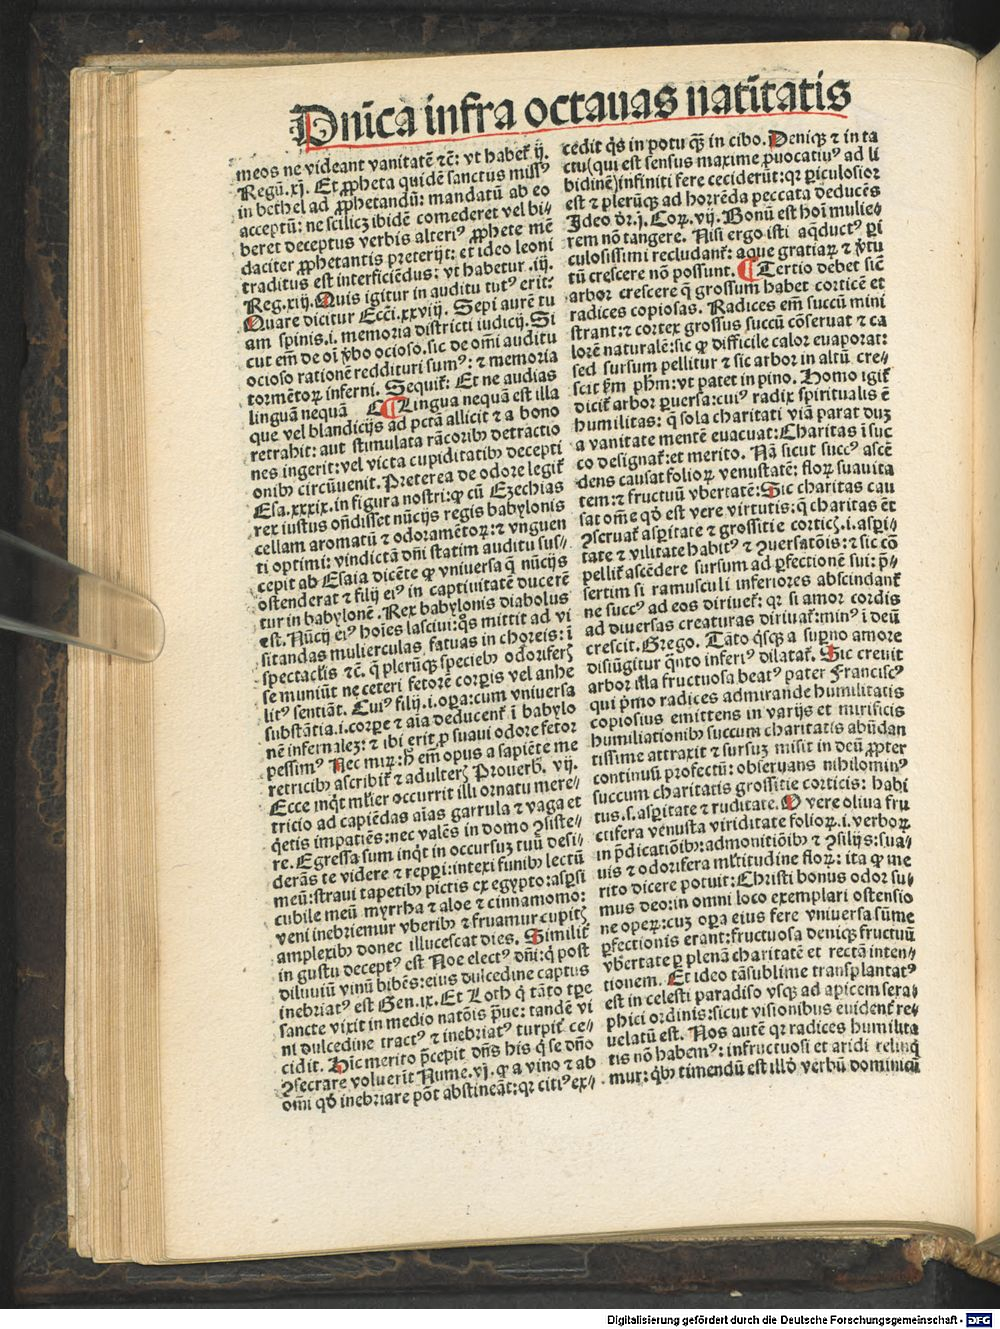 Dn̄ica infra octauas natiͥtatis
meos ne videant vanitatē ⁊c̄: vt habet̉ ij.
Regū.xj. Et ꝓpheta quidē sanctus missꝰ
in bethel ad ꝓphetandū: mandatū ab eo
acceptū: ne scilicꝫ ibidē comederet vel bi⸗
beret deceptus verbis alteriꝰ ꝓphete mē
daciter ꝓphetantis preterijt: et ideo leoni
traditus est interficiēdus: vt habetur .iij.
Reg.xiij. Quis igitur in auditu tutꝰ erit:
Quare dicitur Ecci̅.xxviij. Sepi aurē tu
am spinis.i. memoria districti iudicij. Si
cut em̄ de oi̅ v̓bo ocioso.sic de om̄i auditu
ocioso rationē reddituri sumꝰ: ⁊ memoria
tormētoꝝ inferni. Sequit̉: Et ne audias
linguā nequā ¶ Lingua nequā est illa
que vel blandicijs ad pctā allicit ⁊ a bono
retrahit: aut stimulata rācorib᷒ detractio
nes ingerit: vel victa cupiditatib᷒ decepti
onib᷒ circūuenit. Preterea de odore legit̉
Esa.xxxix. in figura nostri: ꝙ cū Ezechias
rex iustus on̄disset nūcijs regis babylonis
cellam aromatū ⁊ odoramētoꝝ: ⁊ vnguen
ti optimi: vindictā dn̄i statim auditu sus⸗
cepit ab Esaia dicēte ꝙ vniuersa q̄ nūcijs
ostenderat ⁊ filij eiꝰ in captiuitatē ducerē
tur in babylonē. Rex babylonis diabolus
est. Nūcij eiꝰ hoīes lasciui: q̄s mittit ad vi
sitandas mulierculas, fatuas in choreis: ī
spectacl̓is ⁊c̄. q̄ plerūqꝫ speciēb᷒ odoriferꝭ
se muniūt ne ceteri fetorē corꝑis vel anhe
litꝰ sentiāt. Cuiꝰ filij.i.oꝑa: cum vniuersa
substātia.i.corꝑe ⁊ aīa deducent̉ ī babylo
nē infernalez: ⁊ ibi erit ꝓ suaui odore fetor
pessimꝰ Nec miꝝ: h̄ em̄ opus a sapiēte me
retricib᷒ ascribit̉ ⁊ adulterꝭ Prouerb̓. vij.
Ecce inq̇t ml̓ier occurrit illi ornatu mere⸗
tricio ad capiēdas aīas garrula ⁊ vaga et
q̇etis impatiēs: nec valēs in domo ꝯsiste⸗
re. Egressa sum inq̇t in occursuz tuū desi⸗
derās te videre ⁊ repꝑi: intexi funib᷒ lectū
meū: straui tapetib᷒ pictis ex egypto: asꝑsi
cubile meū myrrha ⁊ aloe ⁊ cinnamomo:
veni inebriemur vberib᷒ ⁊ fruamur cupitꝭ
amplexib᷒ donec illucescat dies. Similit̉
in gustu deceptꝰ est Noe electꝰ dn̄i: q̇ post
diluuiū vinū bibēs: eius dulcedine captus
inebriatꝰ est Gen̄.ix. Et Loth q̇ tāto tꝑe
sancte vixit in medio natōis p̄ue: tandē vi
ni dulcedine tractꝰ ⁊ inebriatꝰ turpit̉ ce⸗
cidit. Hīc merito p̄cepit dn̄s his q̇ se dn̄o
ꝯsecrare voluerīt Nume.vj. ꝙ a vino ⁊ ab
om̄i qd̓ inebriare pōt abstineāt: qꝛ citiꝰ ex⸗
cedit q̇s in potu q̄ꝫ in cibo. Deniqꝫ ⁊ in ta
ctu (qui est sensus maxime ꝓuocatiuꝰ ad li
bidinē) infiniti fere ceciderūt: qꝛ ꝑiculosior
est ⁊ plerūqꝫ ad horrēda peccata deducēs
Ideo dr̄.j. Coꝝ. vij. Bonū est hoī mulie⸗
rem nō tangere. Nisi ergo isti aq̄ductꝰ ꝑi
culosissimi recludant̉: aque gratiaꝝ ⁊ v̓tu
tū crescere nō possunt. ¶ Tertio debet sic̄
arbor crescere q̄ grossum habet corticē et
radices copiosas. Radices em̄ succū mini
strant: ⁊ cortex grossus succū cōseruat ⁊ ca
lorē naturalē: sic ꝙ difficile calor euaporat:
sed sursum pellitur ⁊ sic arbor in altū cre⸗
scit ẜm ph̄m: vt patet in pino. Homo igit̉
dicit̉ arbor ꝑuersa: cuiꝰ radix spiritualis ē
humilitas: q̄ sola charitati viā parat duꝫ
a vanitate mentē euacuat: Charitas ī suc
co designat̉: et merito. Nā sicut succꝰ ascē
dens causat folioꝝ venustatē: floꝝ suauita
tem: ⁊ fructuū vbertatē: Sic charitas cau
sat om̄e qd̓ est vere virtutis: q̄ charitas ēt
ꝯseruat̉ asꝑitate ⁊ grossitie corticꝭ.i. asꝑi⸗
tate ⁊ vilitate habitꝰ ⁊ ꝯuersatōis: ⁊ sic cō
pellit̉ ascēdere sursum ad ꝑfectionē sui: p̄⸗
sertim si ramusculi inferiores abscindant̉
ne succꝰ ad eos diriuet̉: qꝛ si amor cordis
ad diuersas creaturas diriuat̉: minꝰ ī deū
crescit. Grego. Tāto q̇sqꝫ a suꝑno amore
disiūgitur q̄nto inferiꝰ dilatat̉. Sic creuit
arbor illa fructuosa beatꝰ pater Franciscꝰ
qui pͥmo radices admirande humilitatis
copiosius emittens in varijs et mirificis
humiliationib᷒ succum charitatis abūdan
tissime attraxit ⁊ sursuꝫ misit in deū ꝓpter
continuū profectū: obseruans nihilominꝰ
succum charitatis grossitie corticis: habi
tus.s. asꝑitate ⁊ ruditate. O vere oliua fru
ctifera venusta viriditate folioꝝ.i. verboꝝ
in p̄dicatiōib᷒: admonitiōib᷒ ⁊ ꝯsilijs: sua⸗
uis ⁊ odorifera ml̓titudine floꝝ: ita ꝙ me
rito dicere potuit: Christi bonus odor su⸗
mus deo: in omni loco exemplari ostensio
ne opeꝝ: cuꝫ oꝑa eius fere vniuersa sūme
ꝑfectionis erant: fructuosa deniqꝫ fructuū
vbertate ꝑ plenā charitatē et rectā inten⸗
tionem. Et ideo tā sublime transplantatꝰ
est in celesti paradiso vsqꝫ ad apicem sera⸗
phici ordinis: sicut visionibus euident̉ re⸗
uelatū est. Nos autē qꝛ radices humilita
tis nō habemꝰ: infructuosi et aridi relinq̄
mur: q̇b᷒ timendū est illd̓ verbū dominicū
Digitalisierung gefördert durch die Deutsche Forschungsgemeinschaft - DFG